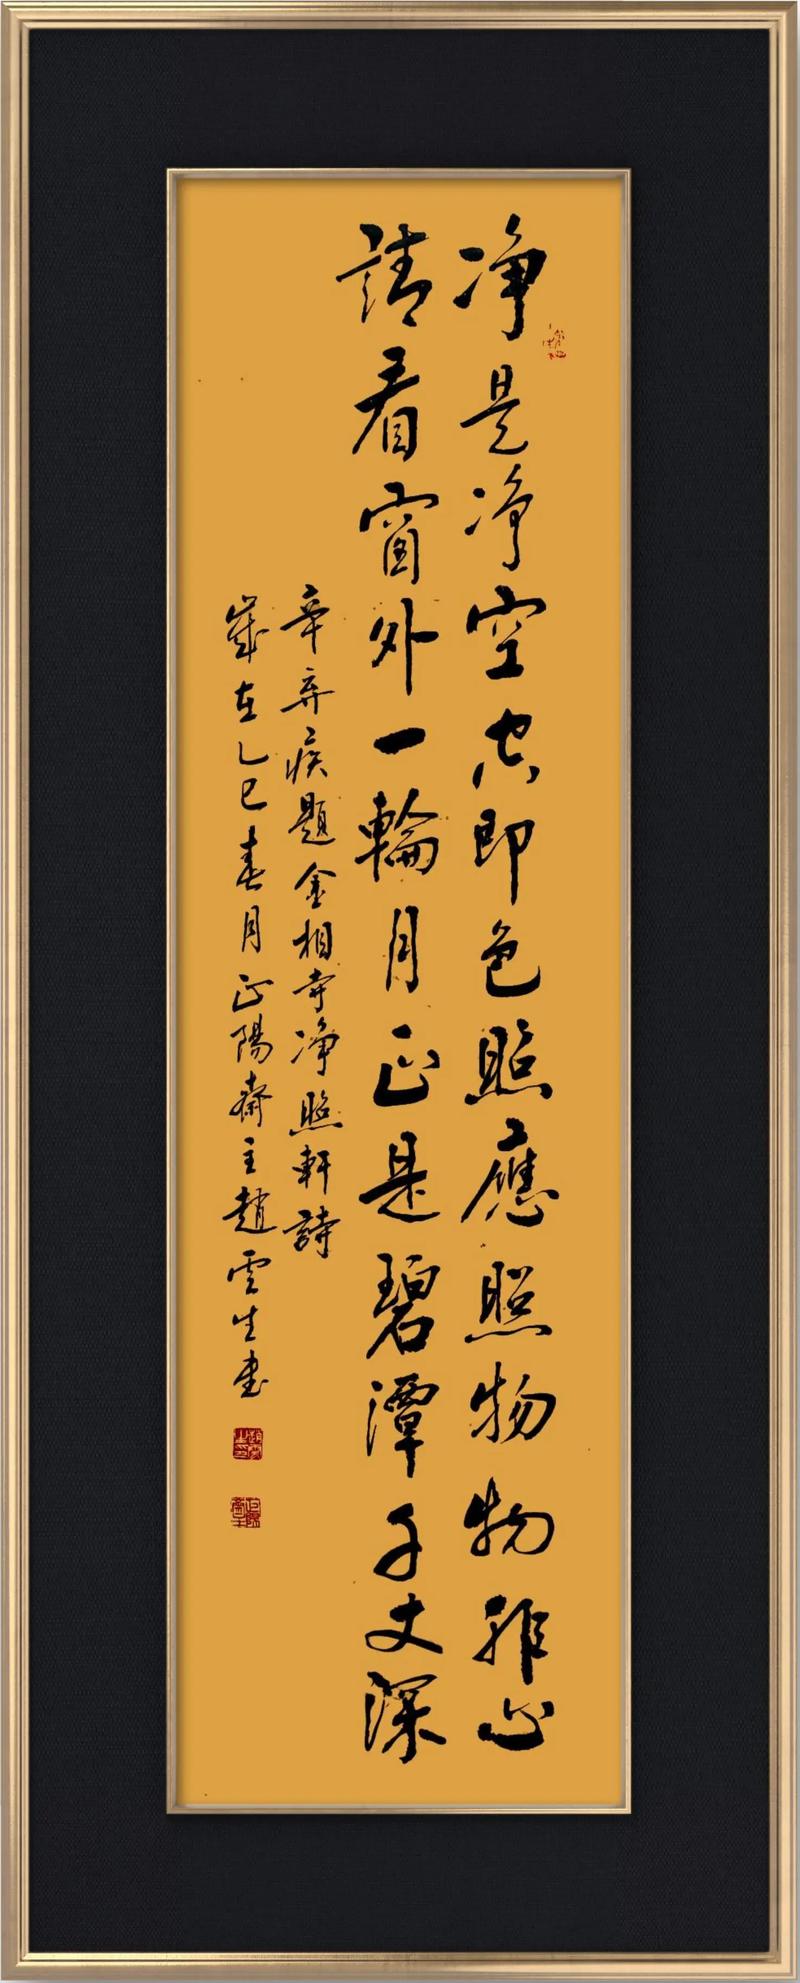 净是净空空即色照應照物物非心
請看窗外一輪月正是碧潭千丈深
辛弃疾題金相寺净照軒詩
歲在乙巳春月正陽齋主趙雲生書